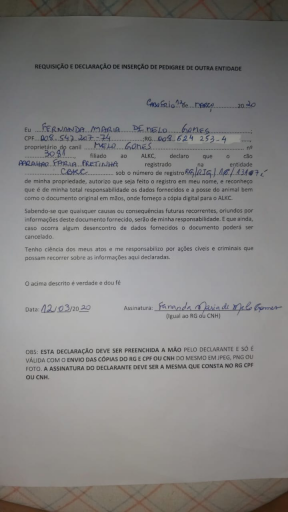 REQUISIÇÃO E DECLARAÇÃO DE INSERÇÃO DE PEDIGREE DE OUTRA ENTIDADE
março 2020
Eu FERNANDA MARIA DE MELO GOMES
CPF 008.547.207-74 RG 008.624 253-4
proprietário do canil MELO GOMES nº
3091 filiado ao ALKC, declaro que o cão
FARIA PRETINHA registrado na entidade
CBKC sob o número de registro
de minha propriedade, autorizo que seja feito o registro em meu nome, e reconheço
que é de minha total responsabilidade os dados fornecidos e a posse do animal bem
como o documento original em mãos, onde forneço a cópia digital para o ALKC.
Sabendo-se que quaisquer causas ou consequências futuras recorrentes, oriundos por
informações deste documento fornecido, serão de minha responsabilidade. E que ainda,
caso ocorra algum desencontro de dados fornecidos o documento poderá ser
cancelado.
Tenho ciência dos meus atos e me responsabilizo por ações cíveis e criminais que
possam recorrer sobre as informações aqui declaradas.
O acima descrito é verdade e dou fé
Data: 12/03/2020 Assinatura: Fernanda Maria de Melo Gomes
(Igual ao RG ou CNH)
OBS: ESTA DECLARAÇÃO DEVE SER PREENCHIDA A MÃO PELO DECLARANTE E SÓ É
VÁLIDA COM O ENVIO DAS CÓPIAS DO RG E CPF OU CNH DO MESMO EM JPEG, PNG OU
FOTO. A ASSINATURA DO DECLARANTE DEVE SER A MESMA QUE CONSTA NO RG CPF
OU CNH.